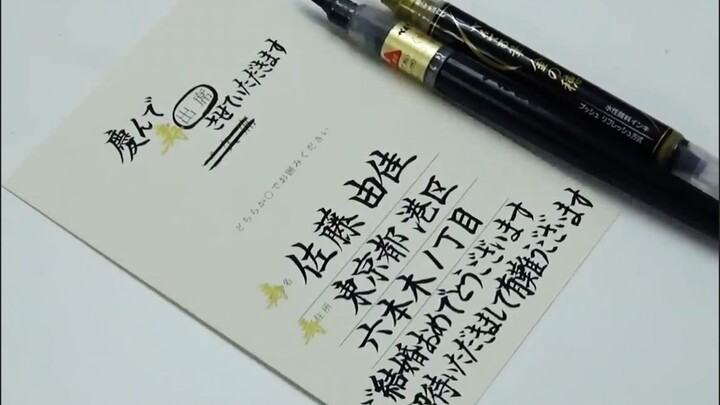 慶んで
寿
出席
させていただきます
どちらか○でお囲みください
寿名
佐藤 由佳
寿住所
東京都港区
六本木ノ丁目
ご結婚おめでとうございます
招待いただきまして有難うございます
水性顔料インキ
プッシュ リフレッシュ方式